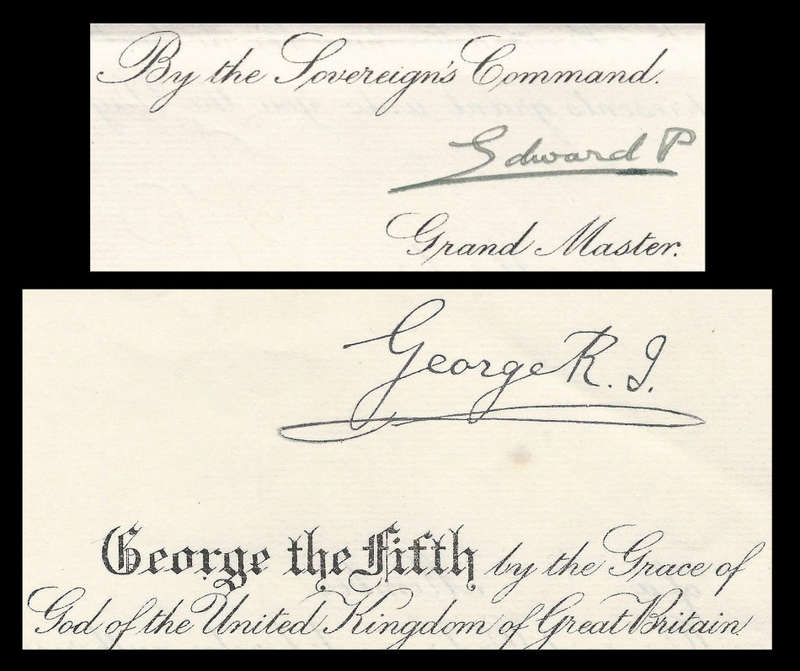 By the Sovereign's Command.
Edward P
Grand Master.
George R. I.
George the Fifth by the Grace of
God of the United Kingdom of Great Britain